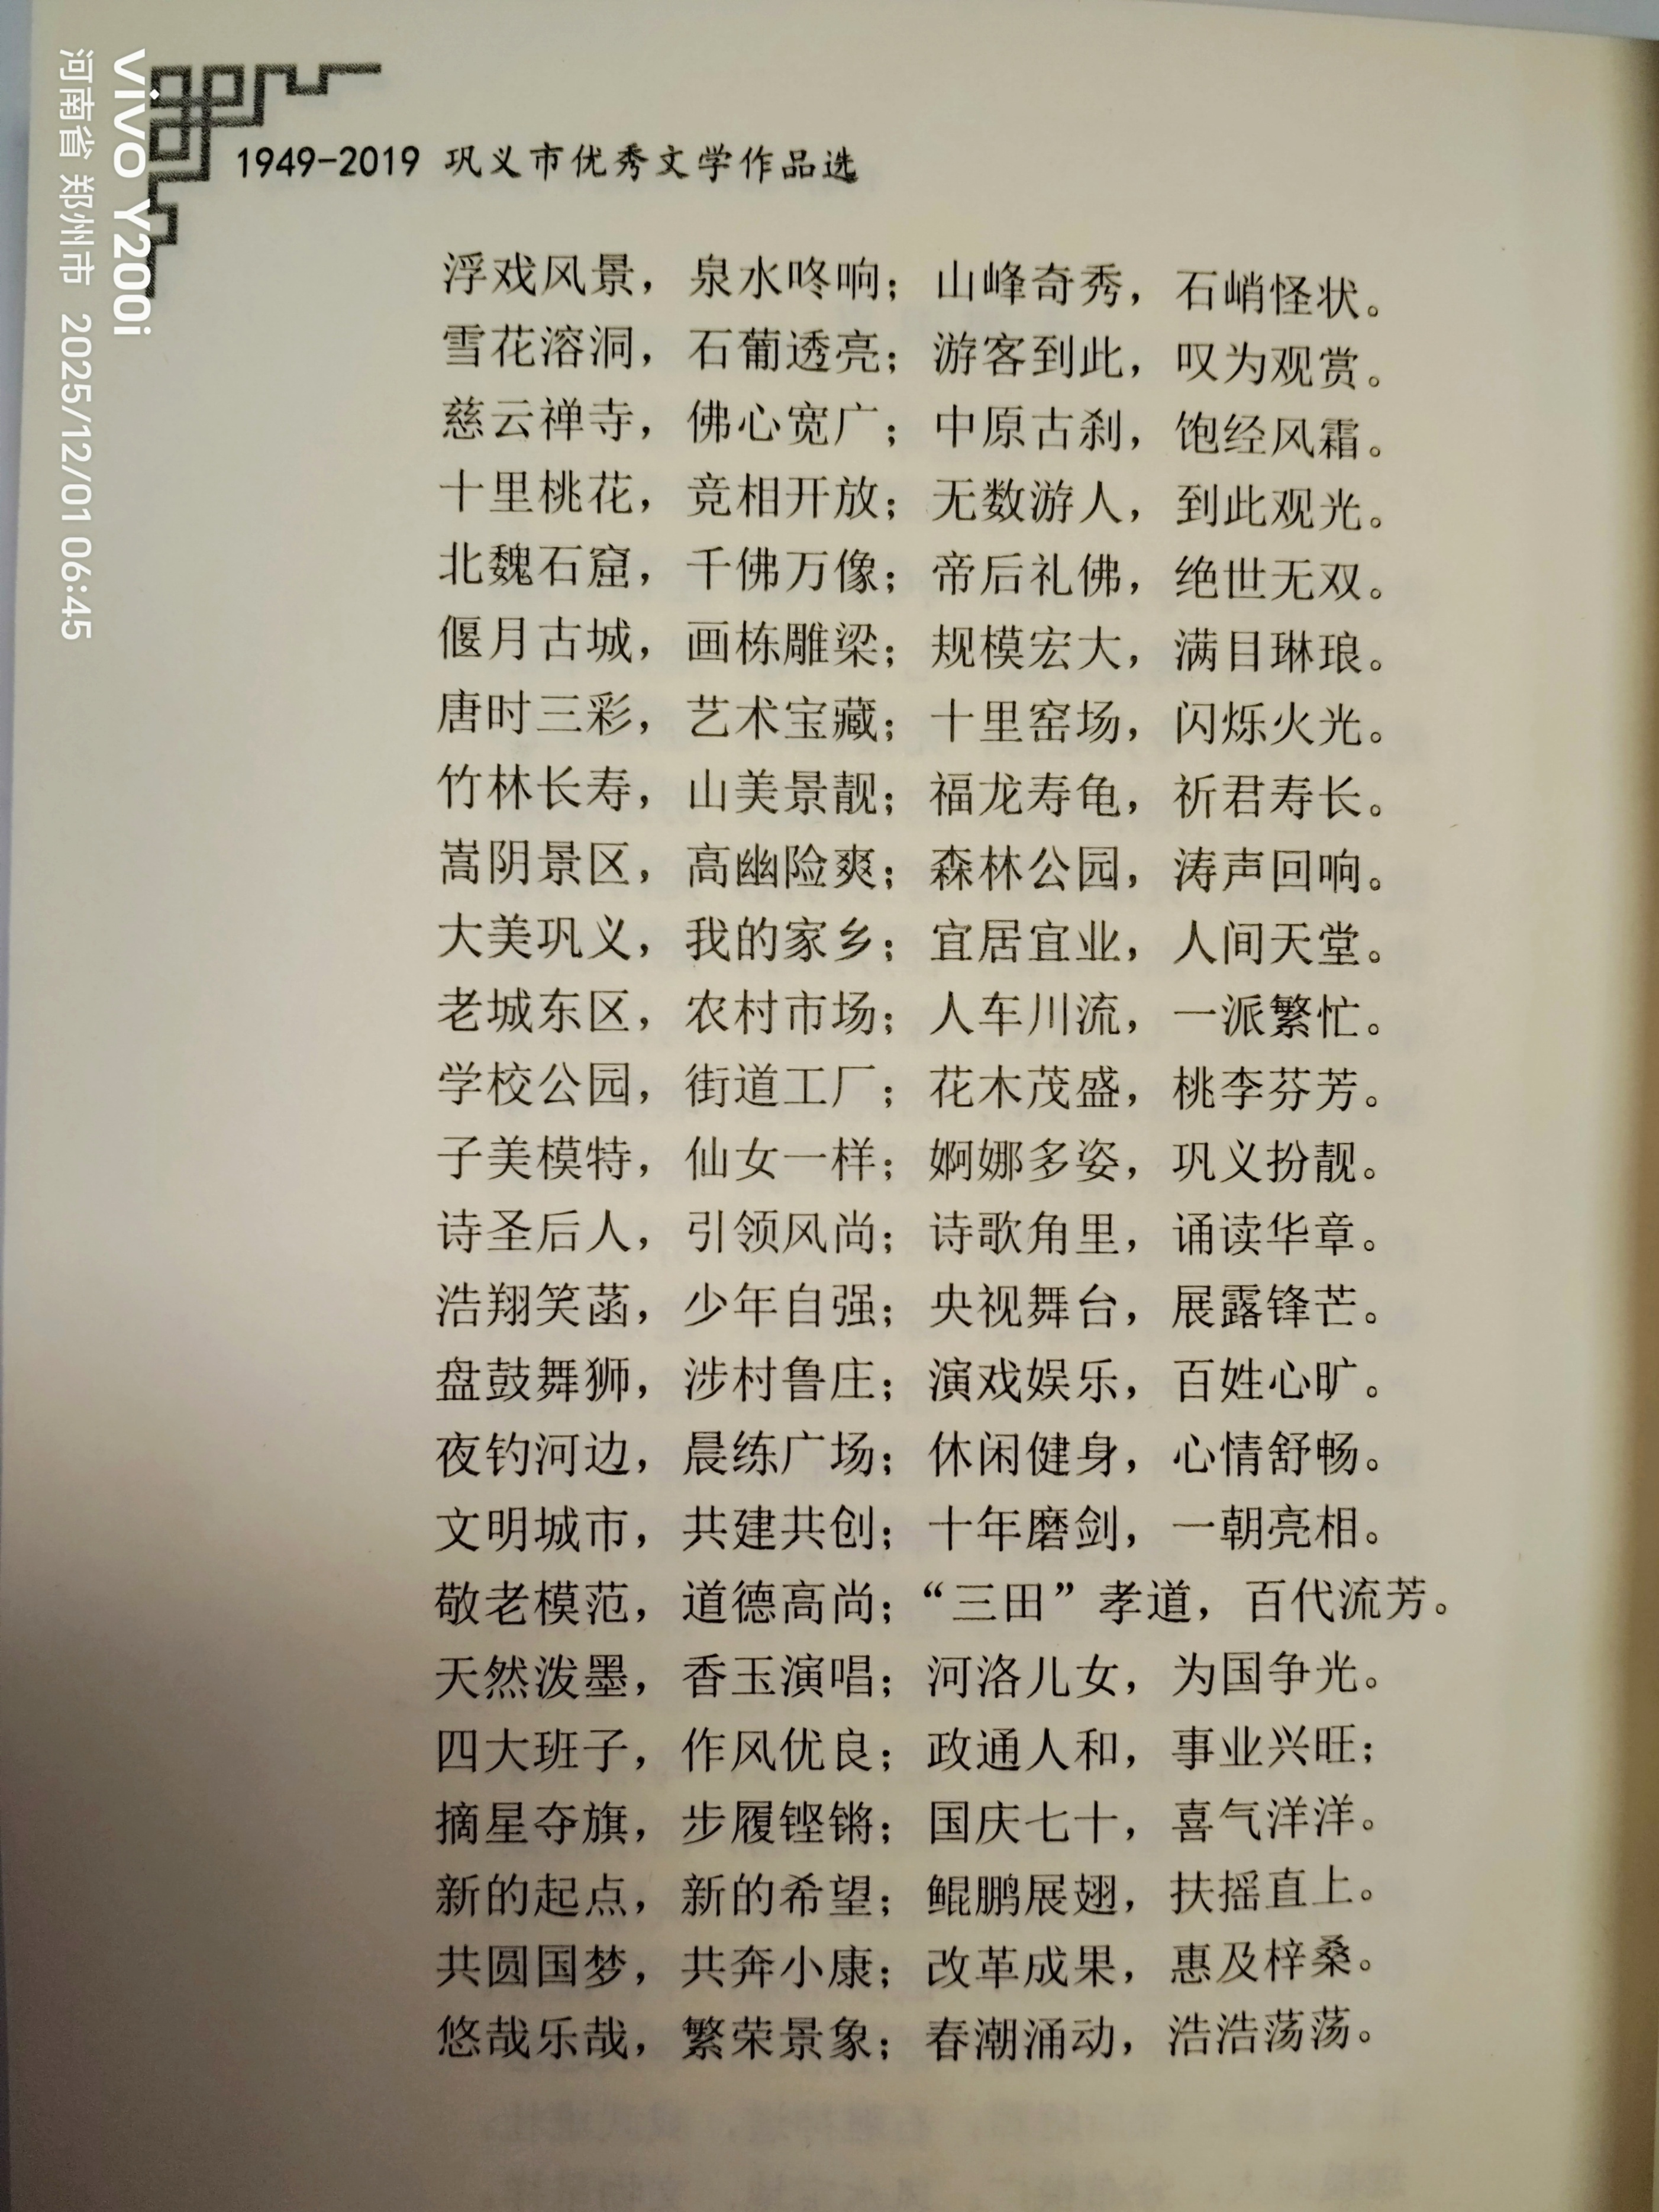 vivo Y200i
河南省 郑州市 2025/12/01 06:45
1949-2019 巩义市优秀文学作品选
浮戏风景，泉水咚响；山峰奇秀，石峭怪状。
雪花溶洞，石葡透亮；游客到此，叹为观赏。
慈云禅寺，佛心宽广；中原古刹，饱经风霜。
十里桃花，竞相开放；无数游人，到此观光。
北魏石窟，千佛万像；帝后礼佛，绝世无双。
偃月古城，画栋雕梁；规模宏大，满目琳琅。
唐时三彩，艺术宝藏；十里窑场，闪烁火光。
竹林长寿，山美景靓；福龙寿龟，祈君寿长。
嵩阴景区，高幽险爽；森林公园，涛声回响。
大美巩义，我的家乡；宜居宜业，人间天堂。
老城东区，农村市场；人车川流，一派繁忙。
学校公园，街道工厂；花木茂盛，桃李芬芳。
子美模特，仙女一样；婀娜多姿，巩义扮靓。
诗圣后人，引领风尚；诗歌角里，诵读华章。
浩翔笑菡，少年自强；央视舞台，展露锋芒。
盘鼓舞狮，涉村鲁庄；演戏娱乐，百姓心旷。
夜钓河边，晨练广场；休闲健身，心情舒畅。
文明城市，共建共创；十年磨剑，一朝亮相。
敬老模范，道德高尚；“三田”孝道，百代流芳。
天然泼墨，香玉演唱；河洛儿女，为国争光。
四大班子，作风优良；政通人和，事业兴旺；
摘星夺旗，步履铿锵；国庆七十，喜气洋洋。
新的起点，新的希望；鲲鹏展翅，扶摇直上。
共圆国梦，共奔小康；改革成果，惠及梓桑。
悠哉乐哉，繁荣景象；春潮涌动，浩浩荡荡。